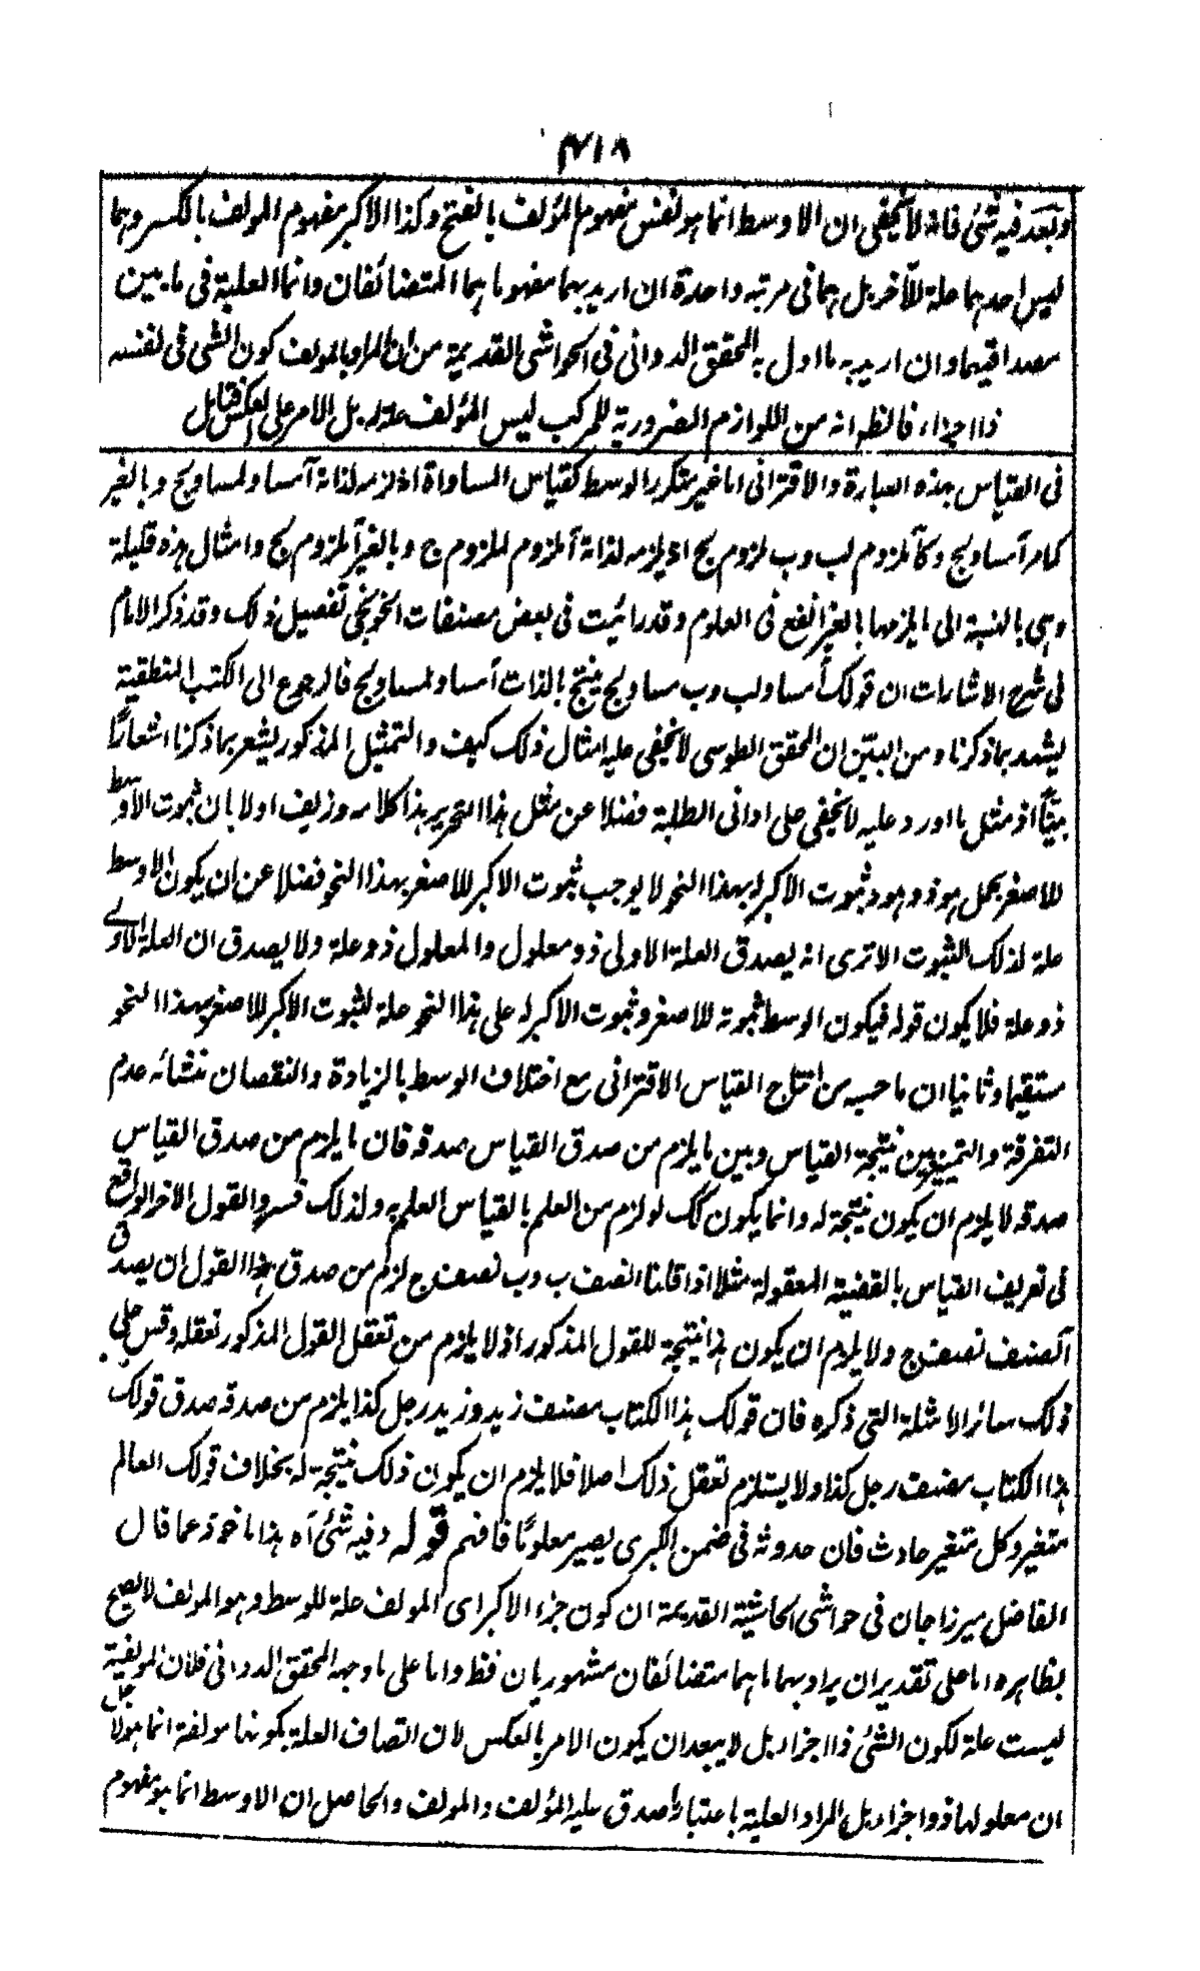 ۴۱۸
وبعد فيه شئ فانه لا يخفى ان الاوسط انما هو نفس مفهوم المؤلف بالفتح وكذا الاكبر مفهوم المولف بالكسر وهما
ليس احدهما علة للآخر بل هما فى مرتبه واحدة ان اريد بهما مفهوما هما المتضائفان وانما العلية فى ما بين
مصداقيهما وان اريد به ما اول به المحقق الدوانى فى الحواشى القديمة من ان المراد بالمولف كون الشئ فى نفسه
ذا اجزاء فالظ انه من اللوازم الضرورية للمركب ليس المؤلف علة له بل الامر على العكس فتامل
فى القياس بهذه العبارة والاقترانى اما غير متكرر الوسط كقياس المساواة اذ لزمه لذاته آ مساو لمساو لج وبالغير
كمامر آ مساو لج وكآ ملزوم لب وب ملزوم لج اذ يلزمه لذاته آ ملزوم لملزوم ج وبالغير آ ملزوم لج وامثال هذه قليلة
وهى بالنسبة الى ما يلزمها بالغير انفع فى العلوم وقد رائيت فى بعض مصنفات الخونجى تفصيل ذلك وقد ذكر الامام
فى شرح الاشارات ان قولك آ مساو لب وب مساو لج ينتج بالذات آ مساو لمساو لج فالرجوع الى الكتب المنطقية
يشهد بما ذكرنا ومن البيّن ان المحقق الطوسى لا يخفى عليه امثال ذلك كيف والتمثيل المذكور يشعر بما ذكرنا اشعارًا
بيّنًا اذ مثل ما اورد عليه لا يخفى على ادانى الطلبة فضلا عن مثل هذا التحرير هذا كلامه وزيف اولا بان ثبوت الاوسط
للاصغر بحمل هو ذو هو وثبوت الاكبر له بهذا النحو لا يوجب ثبوت الاكبر للاصغر بهذا النحو فضلا عن ان يكون الاوسط
علة لذلك الثبوت الا ترى انه يصدق العلة الاولى ذو معلول والمعلول ذو علة ولا يصدق ان العلة الاولے
ذو علة فلا يكون قوله فيكون الوسط ثبوته للاصغر وثبوت الاكبر له على هذا النحو علة لثبوت الاكبر للاصغر بهذا النحو
مستقيما وثانيا ان ما حسبه من انتاج القياس الاقترانى مع اختلاف الوسط بالزيادة والنقصان منشائه عدم
التفرقة والتمييز بين نتيجة القياس وبين ما يلزم من صدق القياس صدقه فان ما يلزم من صدق القياس
صدقه لا يلزم ان يكون نتيجة له وانما يكون كك لو لزم من العلم بالقياس العلم به ولذلك فسروا القول الاخر الواقع
فى تعريف القياس بالقضية المعقولة مثلا اذا قلنا آ نصف ب وب نصف ج لزم من صدق هذا القول ان يصدق
آ نصف نصف ج ولا يلزم ان يكون هذا نتيجة للقول المذكور اذ لا يلزم من تعقل القول المذكور تعقله وقس على
ذلك سائر الامثلة التى ذكره فان قولك هذا الكتاب مصنف زيد وزيد رجل كذا يلزم من صدقه صدق قولك
هذا الكتاب مصنف رجل كذا ولا يستلزم تعقل ذلك اصلا فلا يلزم ان يكون ذلك نتيجة له بخلاف قولك العالم
متغير وكل متغير حادث فان حدوثه فى ضمن الكبرى يصير معلومًا فافهم قوله وفيه شئ آه هذا ماخوذ عما قال
الفاضل ميرزا جان فى حواشى الحاشية القديمة ان كون جزء الاكبر اى المولف علة للوسط وهو المولف لا يصح
بظاهره اما على تقدير ان يراد بهما ما هما متضائفان مشهوريان فظ واما على ما وجهه المحقق الدوانى فلان المولفية
ليست علة لكون الشئ ذا اجزاء بل لا يبعد ان يكون الامر بالعكس لان اتصاف العلة بكونها مولفة انما هو لاجل
ان معلولها ذو اجزاء بل المراد العلية باعتبار ما صدق عليه المؤلف والمولف والحاصل ان الاوسط انما هو مفهوم